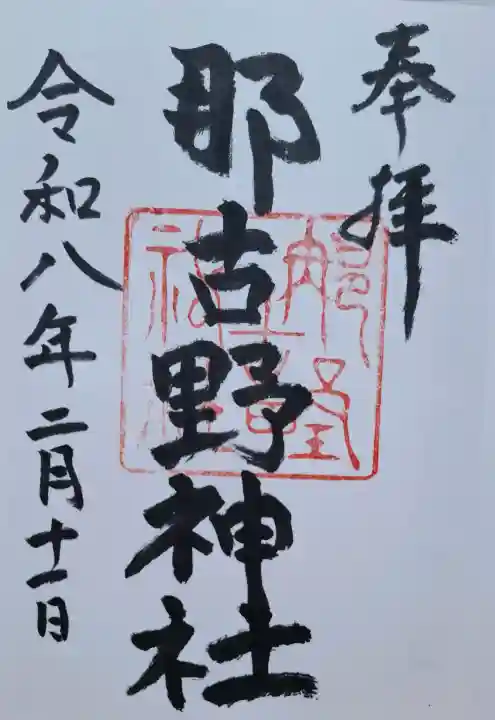 奉拝
那古野神社
令和八年二月十一日